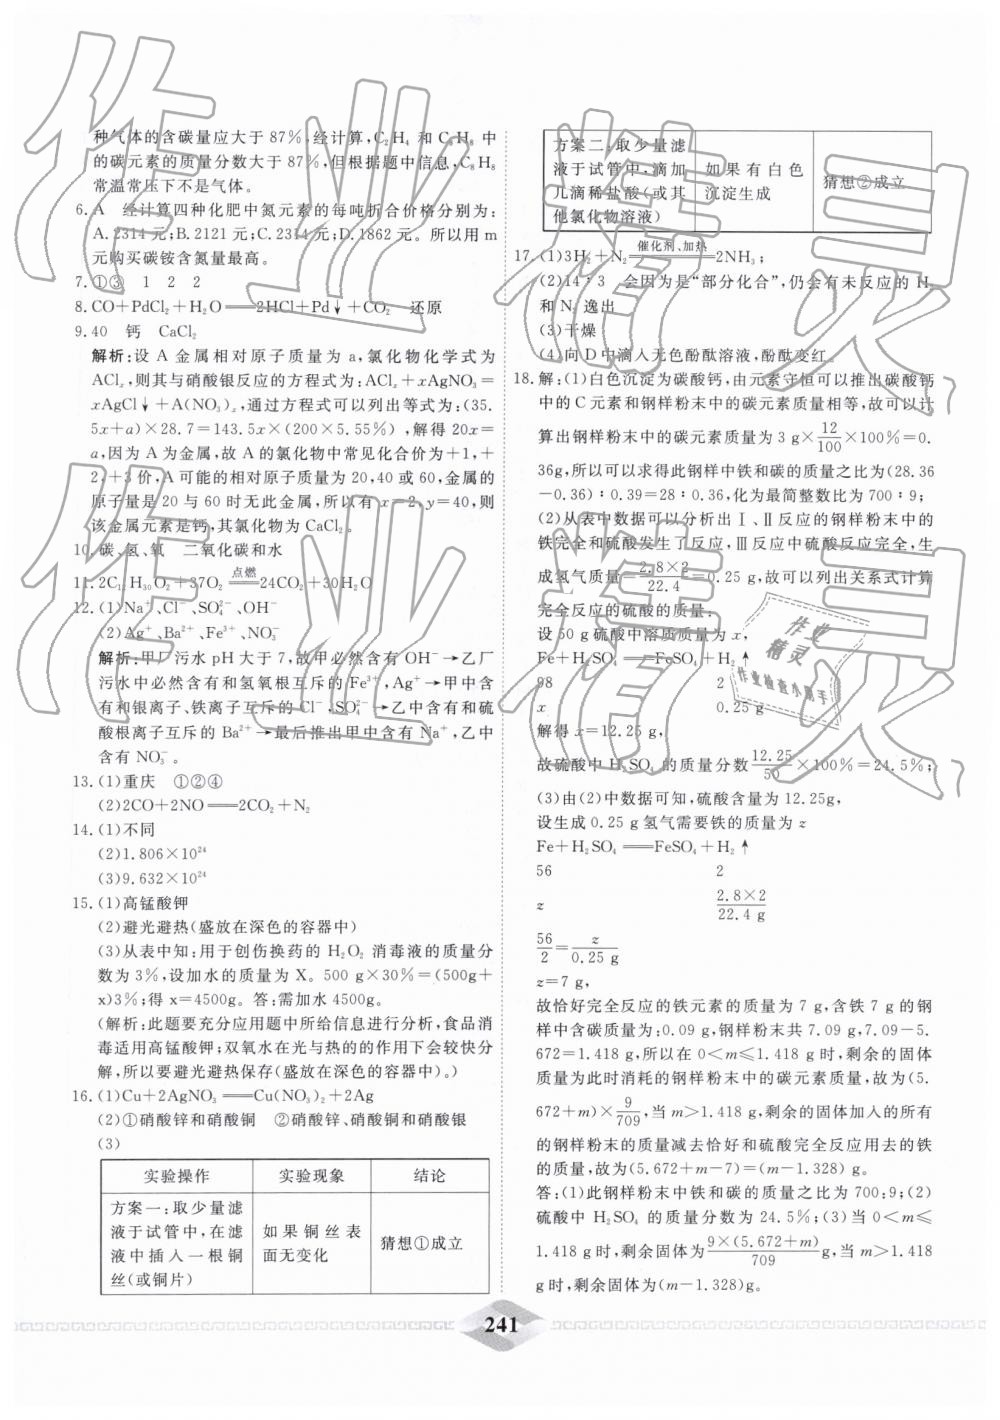 种气体的含碳量应大于87%,经计算,C₂H₄ 和 C₈H₈ 中
的碳元素的质量分数大于87%,但根据题中信息,C₈H₈
常温常压下不是气体。
6. A 经计算四种化肥中氮元素的每吨折合价格分别为:
A. 2314元;B. 2121元;C. 2314元;D. 1862元。所以用m
元购买碳铵含氮量最高。
7. ①③ 1 2 2
8. CO+PdCl₂+H₂O══2HCl+Pd↓+CO₂ 还原
9. 40 钙 CaCl₂
解析:设 A 金属相对原子质量为 a,氯化物化学式为
AClₓ,则其与硝酸银反应的方程式为:AClₓ+xAgNO₃=
xAgCl↓+A(NO₃)ₓ,通过方程式可以列出等式为:(35.
5x+a)×28.7=143.5x×(200×5.55%),解得 20x=
a,因为 A 为金属,故 A 的氯化物中常见化合价为+1,+
2,+3价,A可能的相对原子质量为20,40或60,金属的
原子量是20与60时无此金属,所以有 x=2,y=40,则
该金属元素是钙,其氯化物为 CaCl₂。
10. 碳、氢、氧 二氧化碳和水
11. 2C₁₂H₃₀O₂+37O₂ 点燃══ 24CO₂+30H₂O
12. (1)Na⁺、Cl⁻、SO₄²⁻、OH⁻
(2)Ag⁺、Ba²⁺、Fe³⁺、NO₃⁻
解析:甲厂污水 pH 大于 7,故甲必然含有 OH⁻→乙厂
污水中必然含有和氢氧根互斥的 Fe³⁺,Ag⁺→甲中含
有和银离子、铁离子互斥的 Cl⁻,SO₄²⁻→乙中含有和硫
酸根离子互斥的 Ba²⁺→最后推出甲中含有 Na⁺,乙中
含有 NO₃⁻。
13. (1)重庆 ①②④
(2)2CO+2NO══2CO₂+N₂
14. (1)不同
(2)1.806×10²⁴
(3)9.632×10²⁴
15. (1)高锰酸钾
(2)避光避热(盛放在深色的容器中)
(3)从表中知:用于创伤换药的 H₂O₂ 消毒液的质量分
数为3%,设加水的质量为X。500 g×30%=(500g+
x)3%;得 x=4500g。答:需加水4500g。
(解析:此题要充分应用题中所给信息进行分析,食品消
毒适用高锰酸钾;双氧水在光与热的的作用下会较快分
解,所以要避光避热保存(盛放在深色的容器中)。)
16. (1)Cu+2AgNO₃══Cu(NO₃)₂+2Ag
(2)①硝酸锌和硝酸铜 ②硝酸锌、硝酸铜和硝酸银
(3)
实验操作 实验现象 结论
方案一:取少量滤
液于试管中,在滤
液中插入一根铜
丝(或铜片)
如果铜丝表
面无变化
猜想①成立
方案二:取少量滤
液于试管中,滴加
几滴稀盐酸(或其
他氯化物溶液)
如果有白色
沉淀生成
猜想②成立
17. (1)3H₂+N₂ 催化剂、加热══ 2NH₃;
(2)14∶3 会因为是“部分化合”,仍会有未反应的 H₂
和 N₂ 逸出
(3)干燥
(4)向D中滴入无色酚酞溶液,酚酞变红
18. 解:(1)白色沉淀为碳酸钙,由元素守恒可以推出碳酸钙
中的C元素和钢样粉末中的碳元素质量相等,故可以计
算出钢样粉末中的碳元素质量为 3 g×12/100×100%=0.
36g,所以可以求得此钢样中铁和碳的质量之比为(28.36
-0.36)∶0.39=28∶0.36,化为最简整数比为700∶9;
(2)从表中数据可以分析出Ⅰ、Ⅱ反应的钢样粉末中的
铁完全和硫酸发生了反应,Ⅲ反应中硫酸反应完全,生
成氢气质量=2.8×2/22.4=0.25 g,故可以列出关系式计算
完全反应的硫酸的质量:
设 50 g 硫酸中溶质质量为 x,
Fe+H₂SO₄══FeSO₄+H₂↑
98 2
x 0.25 g
解得 x=12.25 g,
故硫酸中 H₂SO₄ 的质量分数12.25/50×100%=24.5%;
(3)由(2)中数据可知,硫酸含量为12.25g,
设生成0.25 g氢气需要铁的质量为 z
Fe+H₂SO₄══FeSO₄+H₂↑
56 2
z 2.8×2/22.4 g
56/2=z/0.25 g
z=7 g,
故恰好完全反应的铁元素的质量为7 g,含铁7 g的钢
样中含碳质量为:0.09 g,钢样粉末共7.09 g,7.09-5.
672=1.418 g,所以在0<m≤1.418 g时,剩余的固体
质量为此时消耗的钢样粉末中的碳元素质量,故为(5.
672+m)×9/709,当m>1.418 g,剩余的固体加入的所有
的钢样粉末的质量减去恰好和硫酸完全反应用去的铁
的质量,故为(5.672+m-7)=(m-1.328) g。
答:(1)此钢样粉末中铁和碳的质量之比为700:9;(2)
硫酸中 H₂SO₄ 的质量分数为24.5%;(3)当0<m≤
1.418 g时,剩余固体为9×(5.672+m)/709 g,当m>1.418
g时,剩余固体为(m-1.328)g。
241
作业精灵
作业
精灵
作业检查小帮手